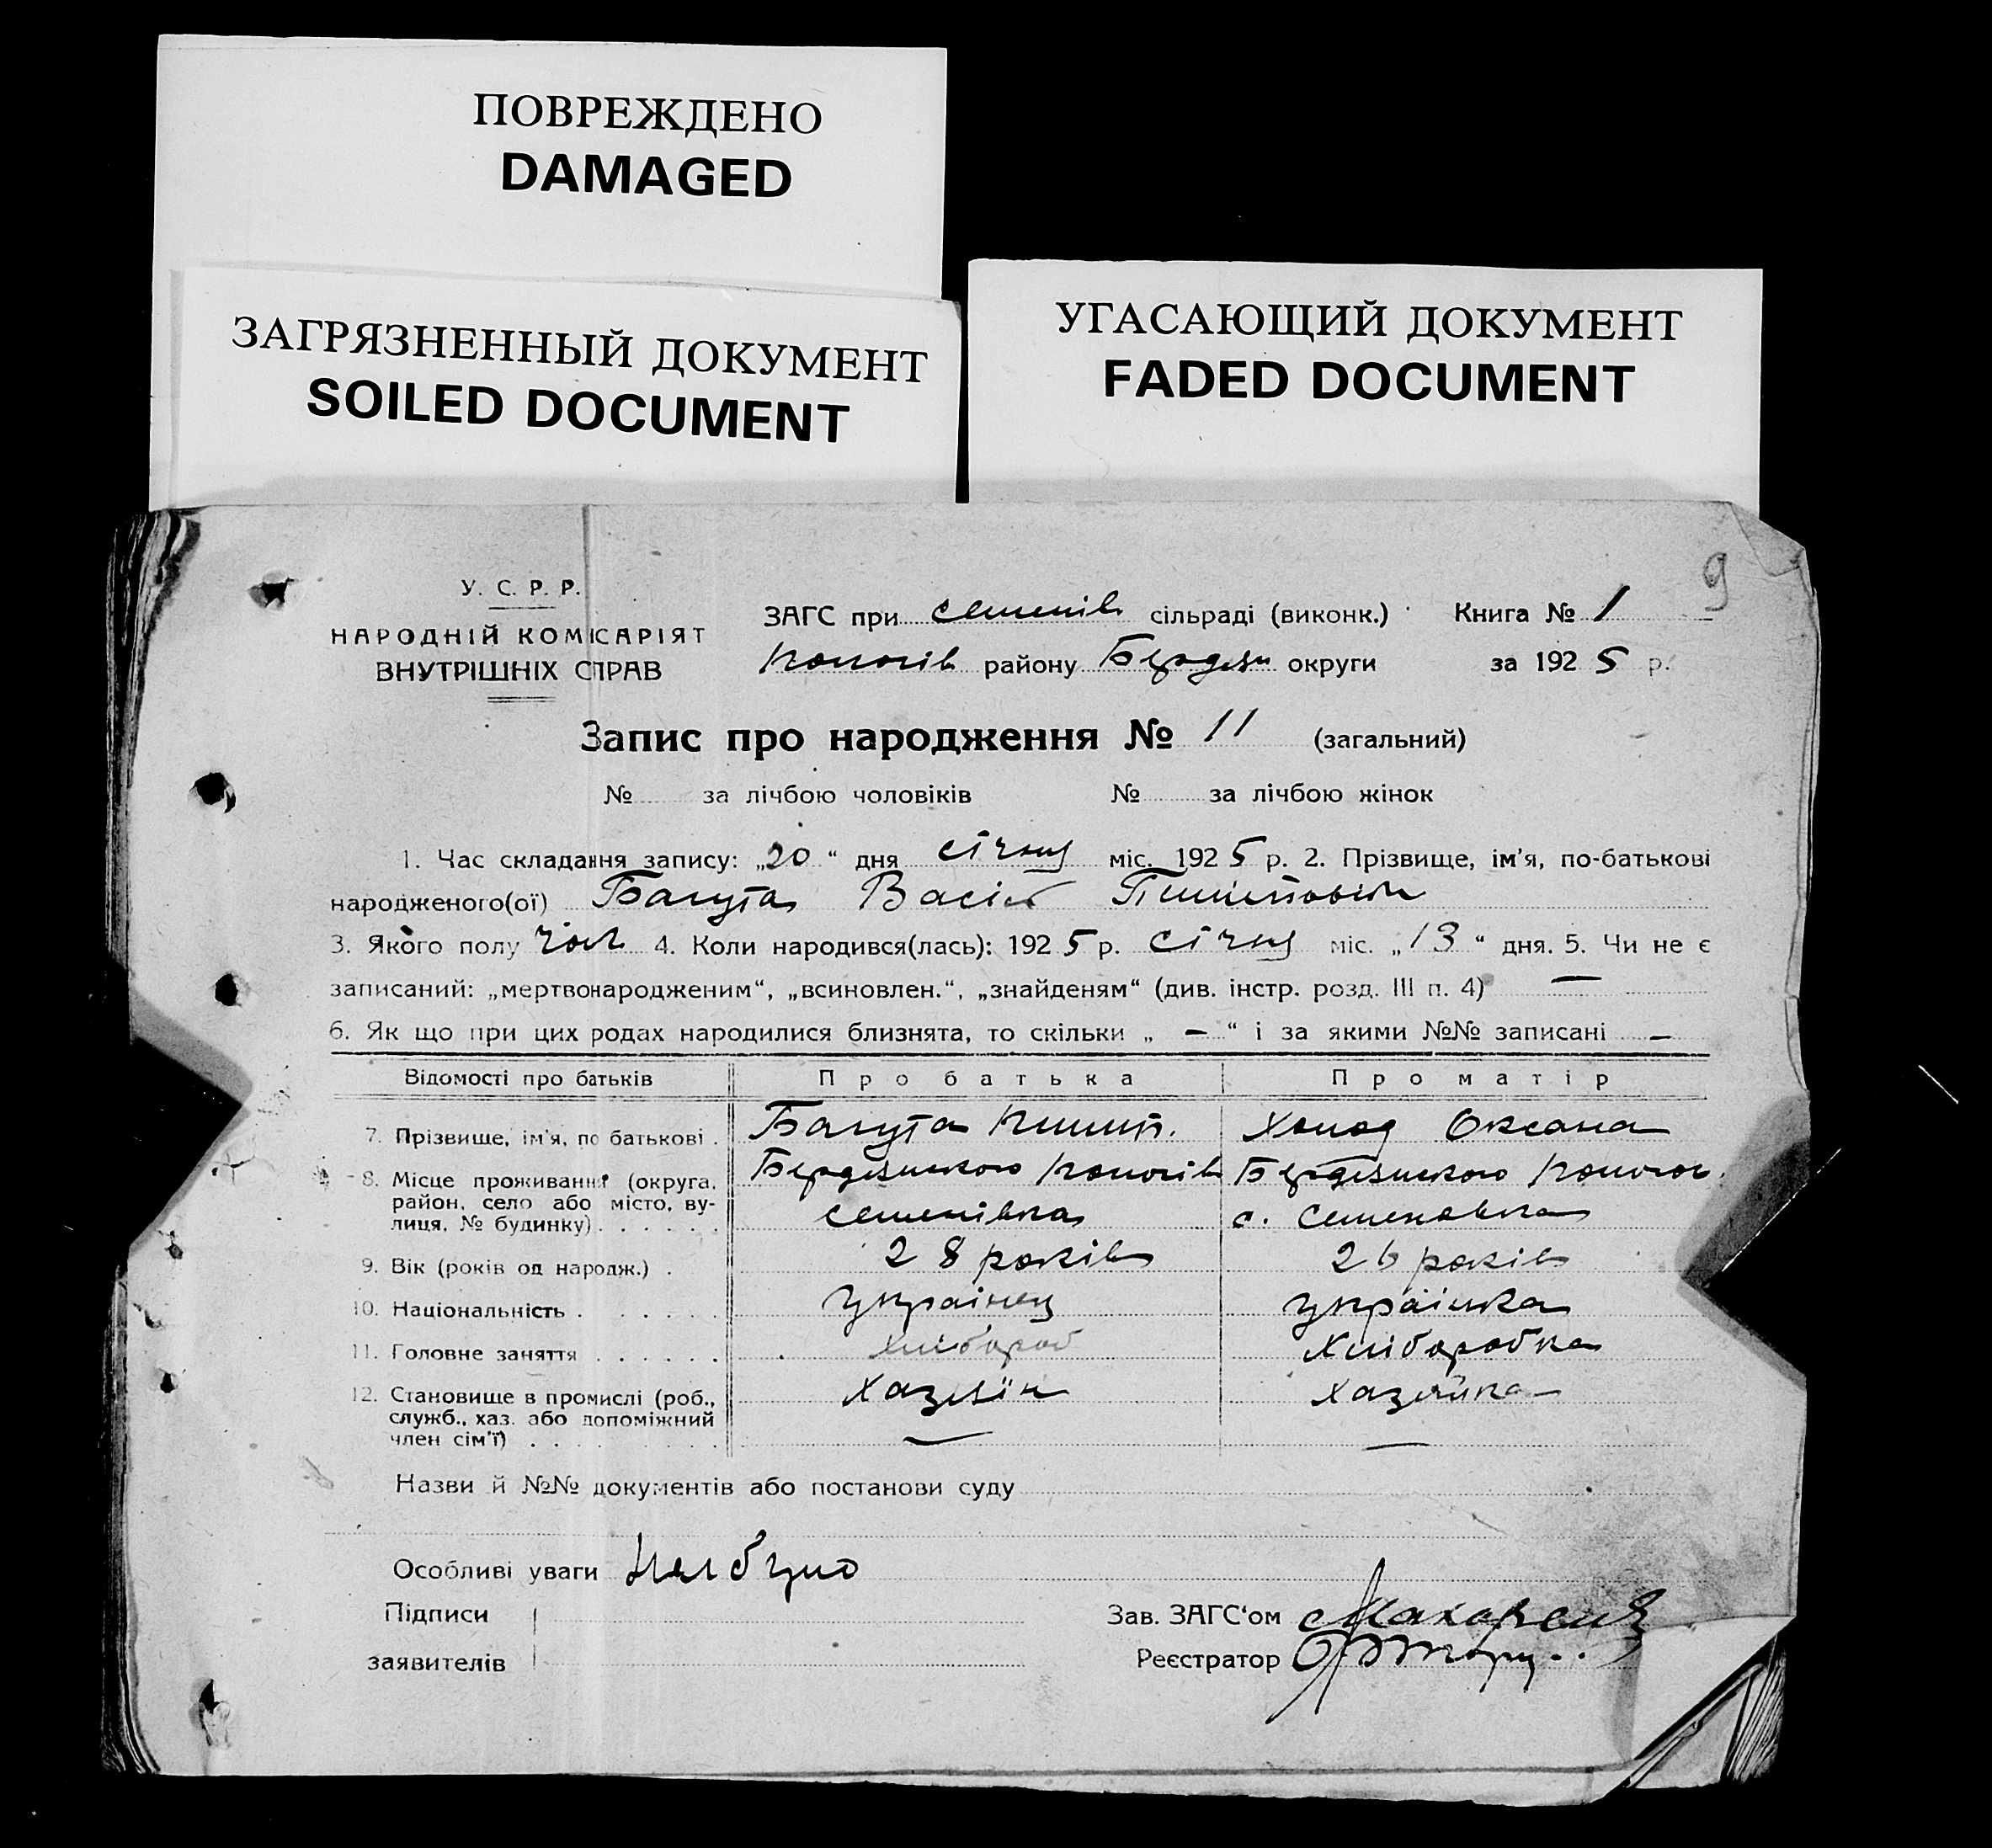 ПОВРЕЖДЕНО
DAMAGED
ЗАГРЯЗНЕННЫЙ ДОКУМЕНТ
SOILED DOCUMENT
УГАСАЮЩИЙ ДОКУМЕНТ
FADED DOCUMENT
9
У. С. Р. Р.
НАРОДНІЙ КОМІСАРІЯТ
ВНУТРІШНІХ СПРАВ
ЗАГС при семенів сільраді (виконк.) Книга № 1
району Бердян округи за 1925 р.
Запис про народження № 11 (загальний)
№ за лічбою чоловіків № за лічбою жінок
1. Час складання запису: „20“ дня січня міс. 1925 р. 2. Прізвище, ім'я, по-батькові
народженого(ої)
3. Якого полу чол 4. Коли народився(лась): 1925 р. січня міс. „13“ дня. 5. Чи не є
записаний: „мертвонародженим“, „всиновлен.“, „знайденям“ (див. інстр. розд. III п. 4) —
6. Як що при цих родах народилися близнята, то скільки „ — “ і за якими №№ записані —
Відомості про батьків Про батька Про матір
7. Прізвище, ім'я, по батькові . Оксана
8. Місце проживання (округа, Бердянського Бердянського
район, село або місто, ву- семенівка с. Семеновка
лиця, № будинку) . . . . . .
9. Вік (років од народж.) . 28 років 26 років
10. Національність . . . . . . українец українка
11. Головне заняття . . . . . . хлібороб Хліборобка
12. Становище в промислі (роб., Хазяїн хазяйка
служб., хаз. або допоміжний
член сім'ї) . . . . . . . . . — —
Назви й №№ документів або постанови суду
Особливі уваги Не було
Підписи Зав. ЗАГС'ом
заявителів Реєстратор